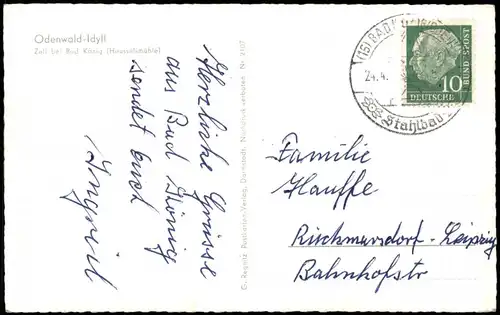 Odenwald-Idyll
Zell bei Bad König
Herzliche Grüsse
aus Bad König
sendet Euch
Ingrid
G. Regnitz Postkarten-Verlag, Darmstadt, Nachdruck verboten Nr. 2107
(16) BAD
24.4.
Stahlbad
10
BUNDESPOST
DEUTSCHE
Familie
Hauffe
Rückmarsdorf-Leipzig
Bahnhofstr